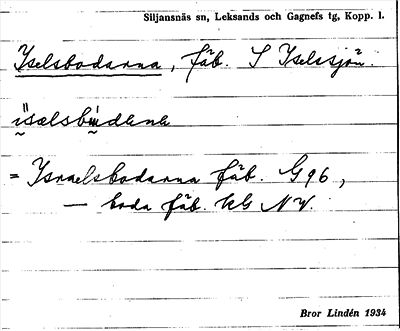 Siljansnäs sn, Leksands och Gagnefs tg, Kopp. l.
Iselsbodarna, fäb. S Iselssjön.
= Israelsbodarna fäb. G 96,
— boda fäb. kls NV.
Bror Lindén 1934